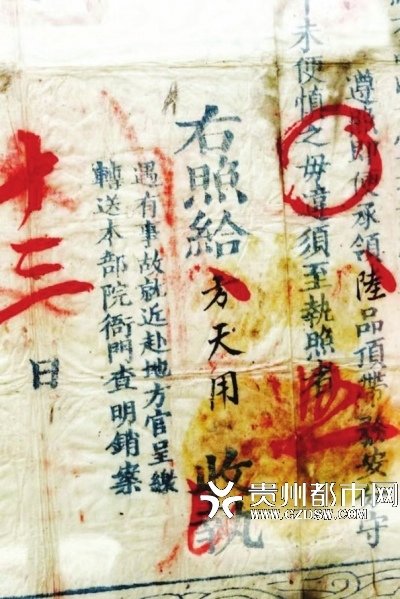 遵照即便承領陸品頂帶務安分守
未便慎之毋違須至執照者
右照給方天用收執
遇有事故就近赴地方官呈繳
轉送本部院衙門查明銷案
十三日
貴州都市网
WWW.GZDSW.COM